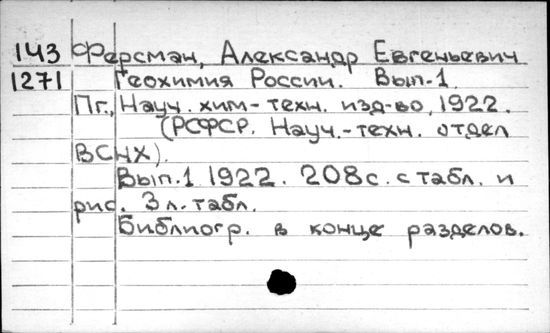 143 Ферсман, Александр Евгеньевич
1271 Геохимия России. Вып.1.
Пг., Науч. хим-техн. изд-во, 1922.
(РСФСР. Науч.-техн. отдел
ВСНХ).
Вып.1 1922. 208с. с табл. и
рис. 3 л. табл.
Библиогр. в конце разделов.